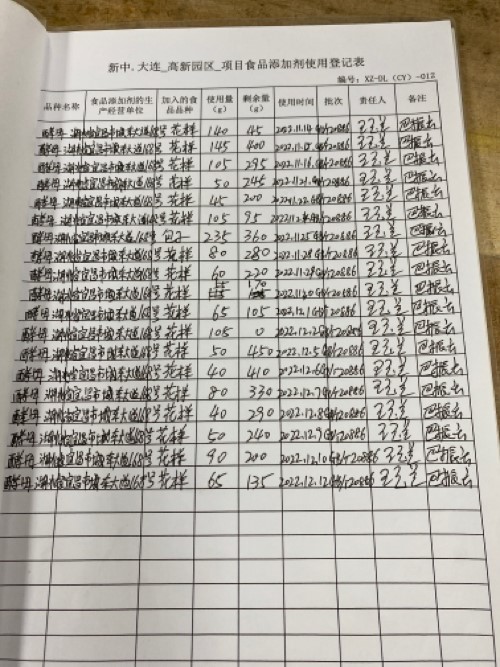 新中.大连_高新园区_项目食品添加剂使用登记表
编号:XZ-DL(CY)-012
品种名称 食品添加剂的生产经营单位 加入的食品品种 使用量(g) 剩余量(g) 使用时间 批次 责任人 备注
酵母 湖北省宜昌市城东大道168号 花样 140 45 2022.11.14 GB/T20886 巴振云
酵母 湖北省宜昌市城东大道168号 花样 145 400 GB/T20886 巴振云
酵母 湖北省宜昌市城东大道168号 花样 105 295 2022.11.18 GB/T20886 巴振云
酵母 湖北省宜昌市城东大道168号 花样 50 245 2022.11.21 GB/T20886 巴振云
酵母 湖北省宜昌市城东大道168号 花样 45 200 GB/T20886 巴振云
酵母 湖北省宜昌市城东大道168号 花样 105 95 GB/T20886 巴振云
酵母 湖北省宜昌市城东大道168号 包子 235 360 2022.11.25 GB/T20886 巴振云
酵母 湖北省宜昌市城东大道168号 花样 80 280 2022.11.28 GB/T20886 巴振云
酵母 湖北省宜昌市城东大道168号 花样 60 220 GB/T20886 巴振云
酵母 湖北省宜昌市城东大道168号 花样 170 GB/T20886 巴振云
酵母 湖北省宜昌市城东大道168号 花样 65 105 GB/T20886 巴振云
酵母 湖北省宜昌市城东大道168号 花样 105 0 2022.12.2 GB/T20886 巴振云
酵母 湖北省宜昌市城东大道168号 花样 50 450 2022.12.5 GB/T20886 巴振云
酵母 湖北省宜昌市城东大道168号 花样 40 410 2022.12.6 GB/T20886 巴振云
酵母 湖北省宜昌市城东大道168号 花样 80 330 2022.12.7 GB/T20886 巴振云
酵母 湖北省宜昌市城东大道168号 花样 40 290 2022.12.8 GB/T20886 巴振云
酵母 湖北省宜昌市城东大道168号 花样 50 240 2022.12.9 GB/T20886 巴振云
酵母 湖北省宜昌市城东大道168号 花样 90 200 2022.12.10 GB/T20886 巴振云
酵母 湖北省宜昌市城东大道168号 花样 65 135 2022.12.12 GB/T20886 巴振云